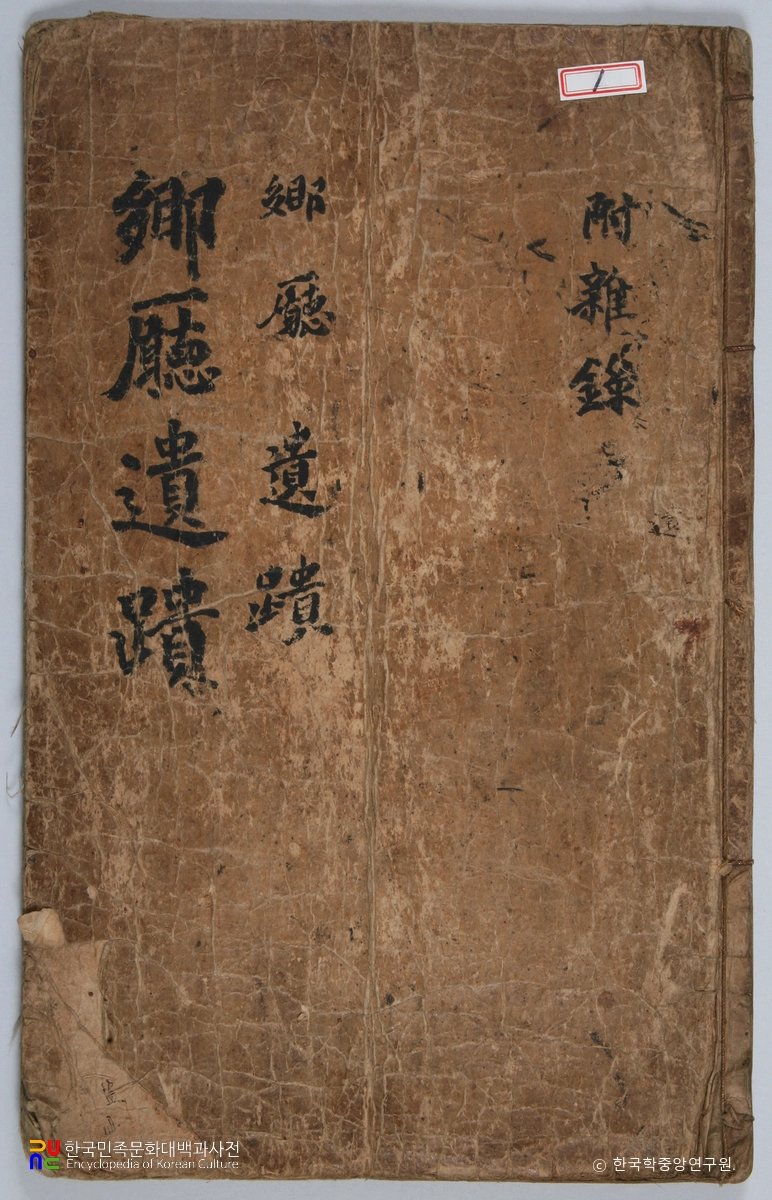 附雜錄
鄉廳遺蹟
鄉廳遺蹟
1
한국민족문화대백과사전
Encyclopedia of Korean Culture
© 한국학중앙연구원